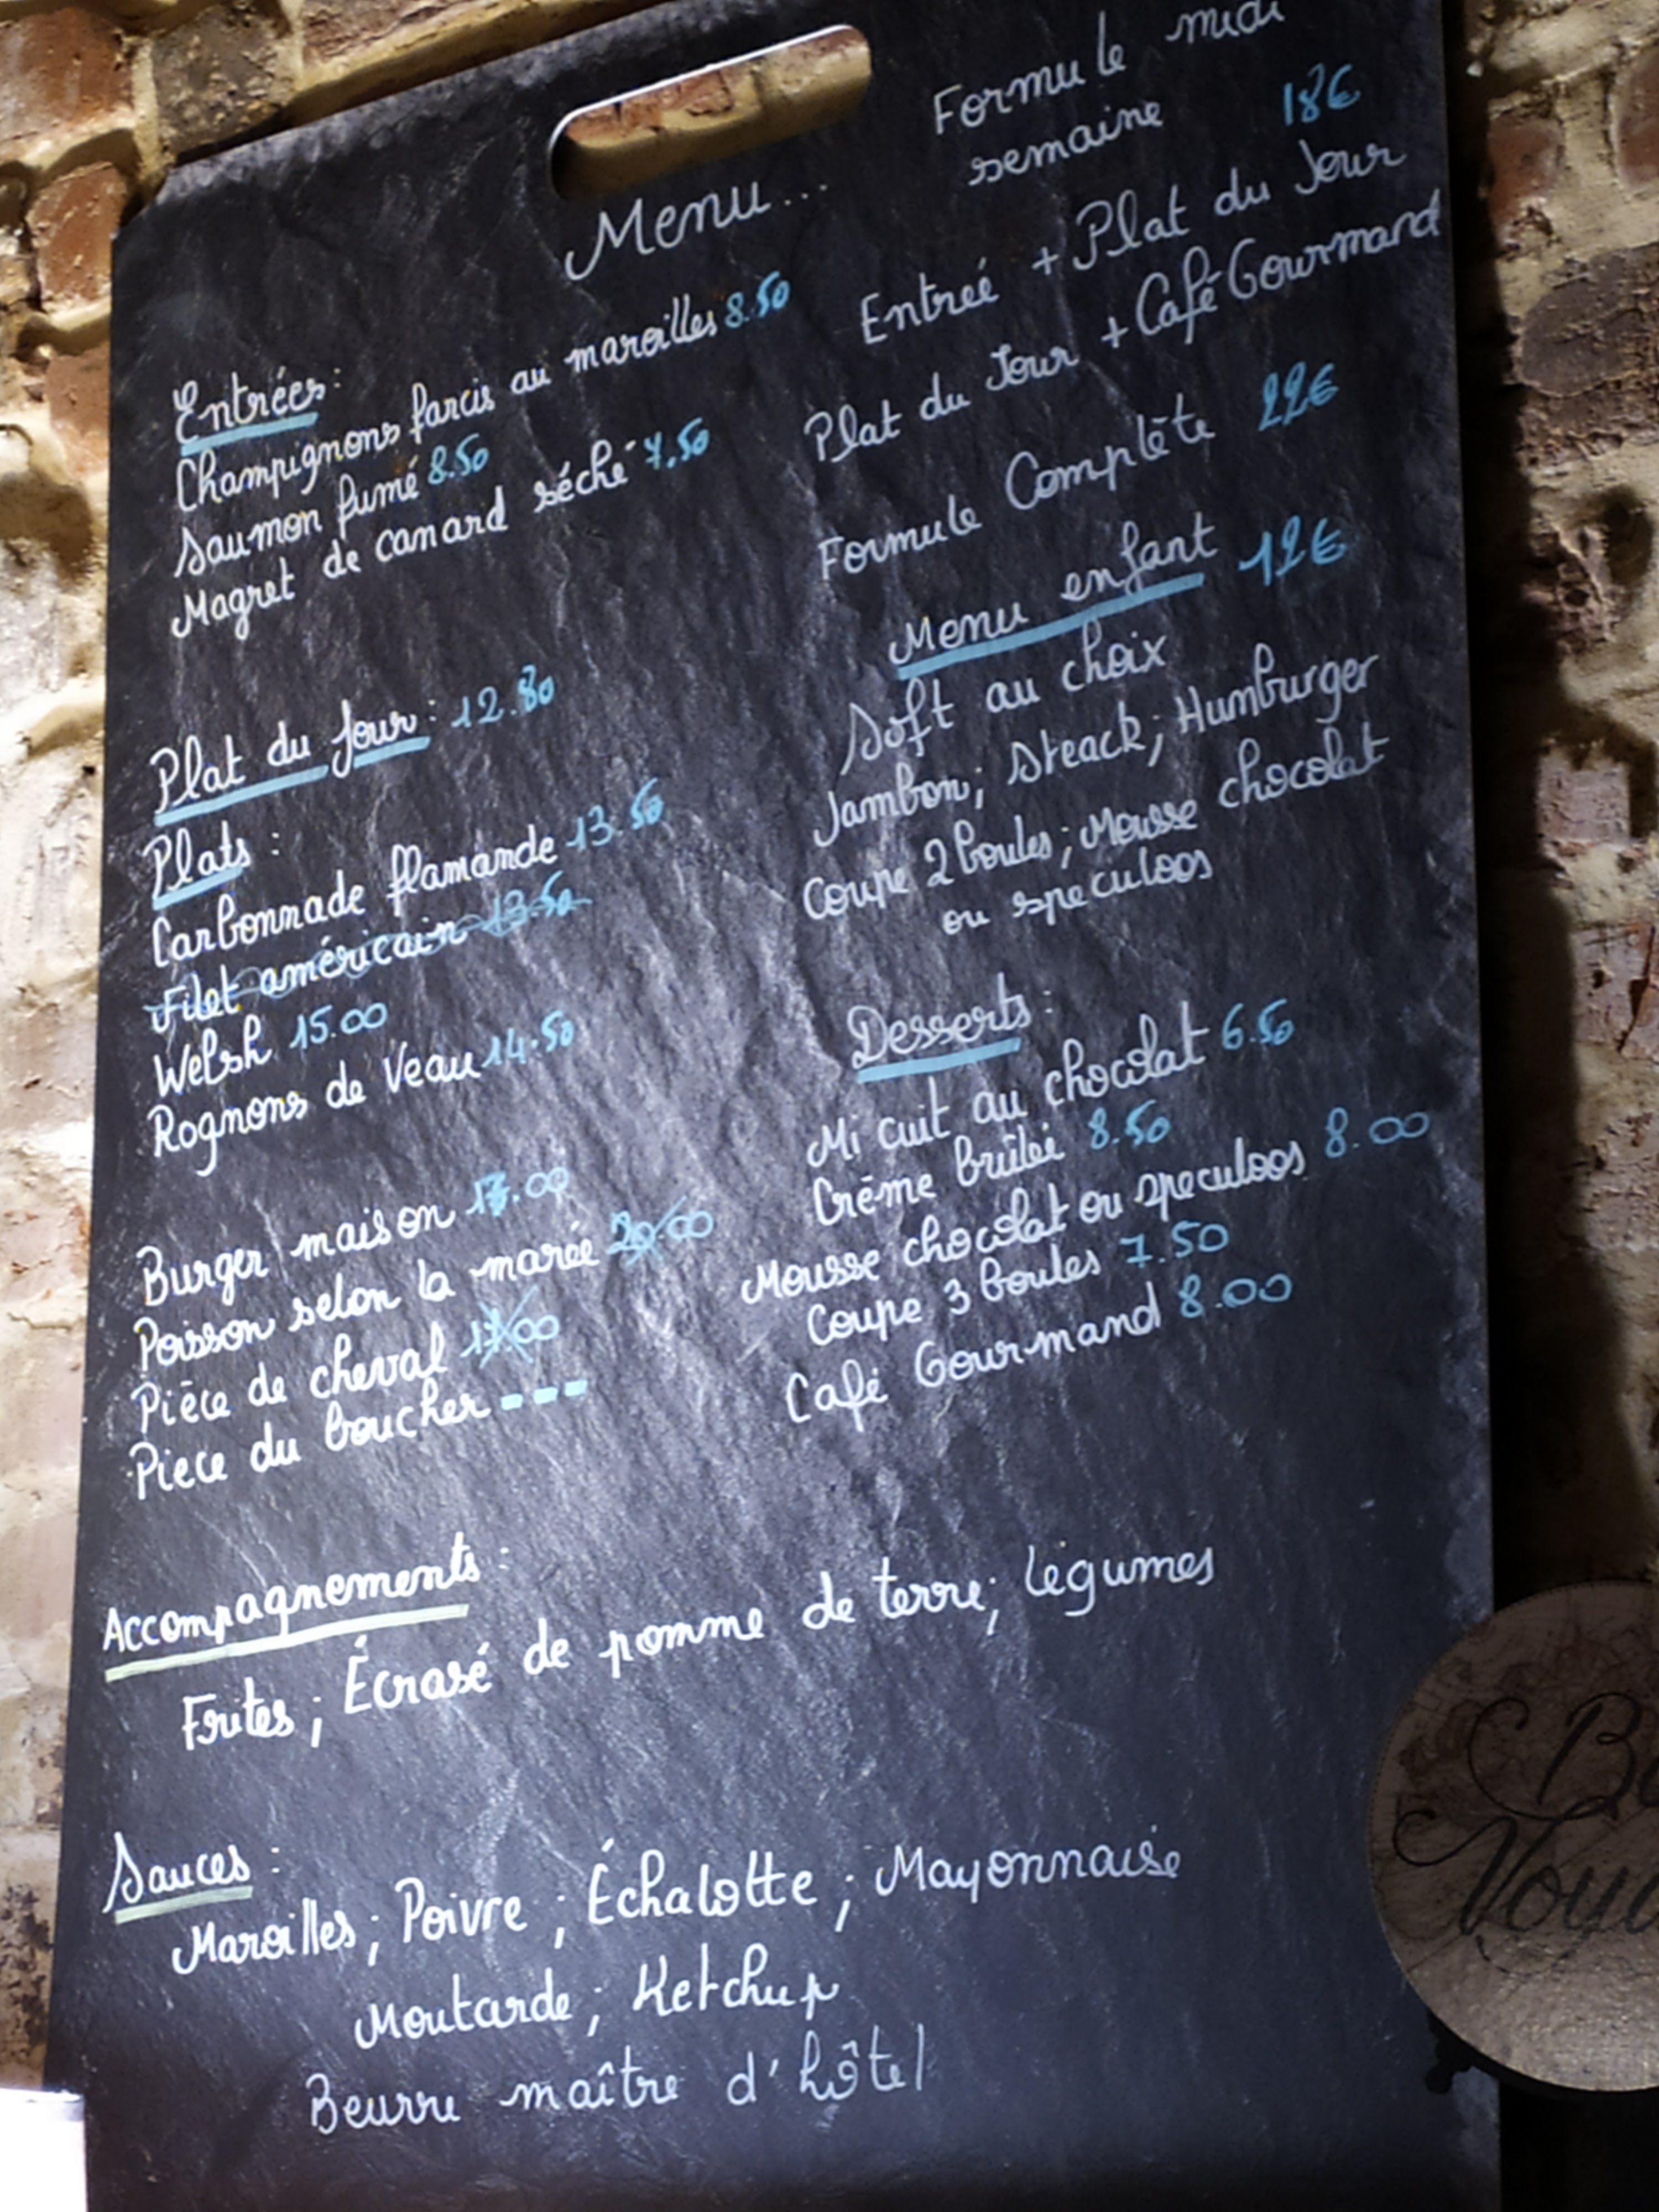 Menu...
Entrées:
Champignons farcis au maroilles 8.50
Saumon fumé 8.50
Magret de canard séché 7.50
Plat du jour: 12.80
Plats:
Carbonnade flamande 13.50
Filet américain 13.50
Welsh 15.00
Rognons de Veau 14.50
Burger maison
Poisson selon la marée 20.00
Pièce de cheval
Piece du boucher ---
Formule midi
semaine 18€
Entreé + Plat du Jour
Plat du Jour + Café Gourmand
Formule Complète 22€
Menu enfant 12€
Soft au choix
Jambon; Steack; Humburger
Coupe 2 boules; Mousse chocolat
ou speculoos
Desserts:
Mi cuit au chocolat 6.50
Crème brûlée 8.50
Mousse chocolat ou speculoos 8.00
Coupe 3 boules 7.50
Café Gourmand 8.00
Accompagnements:
Frites; Écrasé de pomme de terre; légumes
Sauces:
Maroilles; Poivre; Échalotte; Mayonnaise
Moutarde; Ketchup
Beurre maître d'hôtel